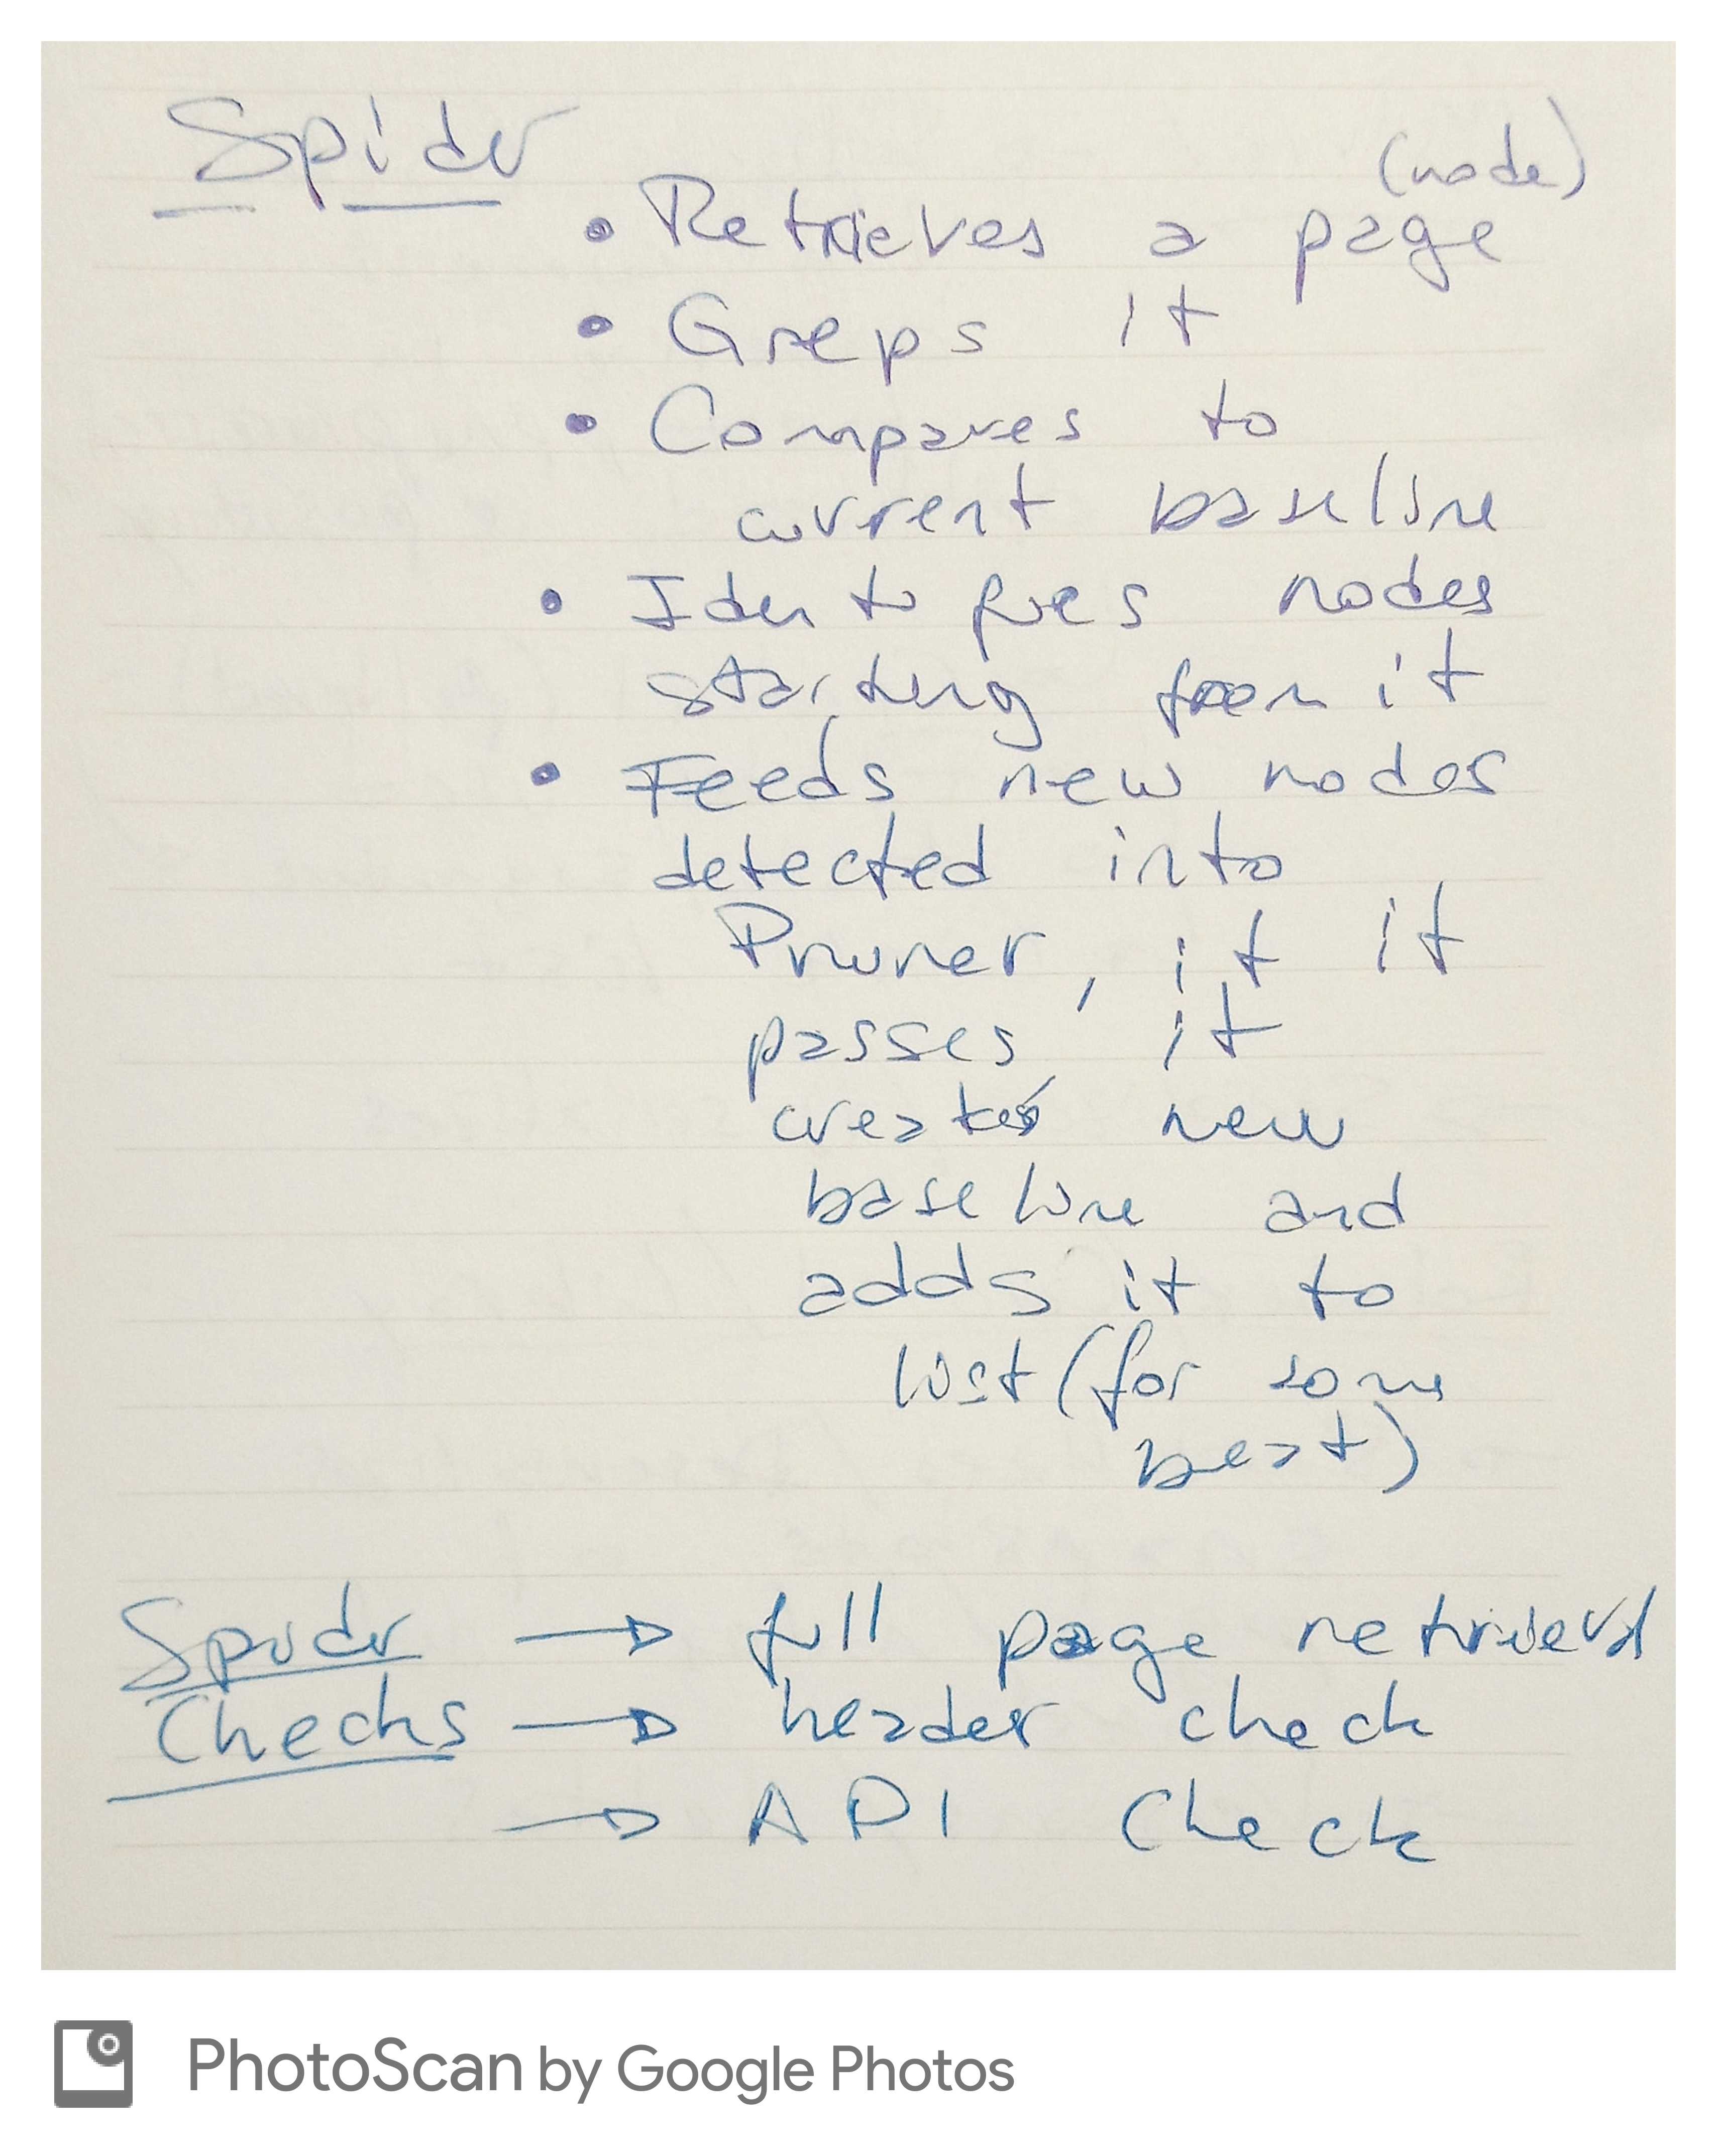 Spider
(node)
• Retrieves a page
• Greps it
• Compares to
current baseline
• Identifies nodes
starting from it
• Feeds new nodes
detected into
Pruner, if it
passes, it
creates new
baseline and
adds it to
list (for some
beat)
Spider → full page retrieval
Checks → header check
→ API Check
PhotoScan by Google Photos